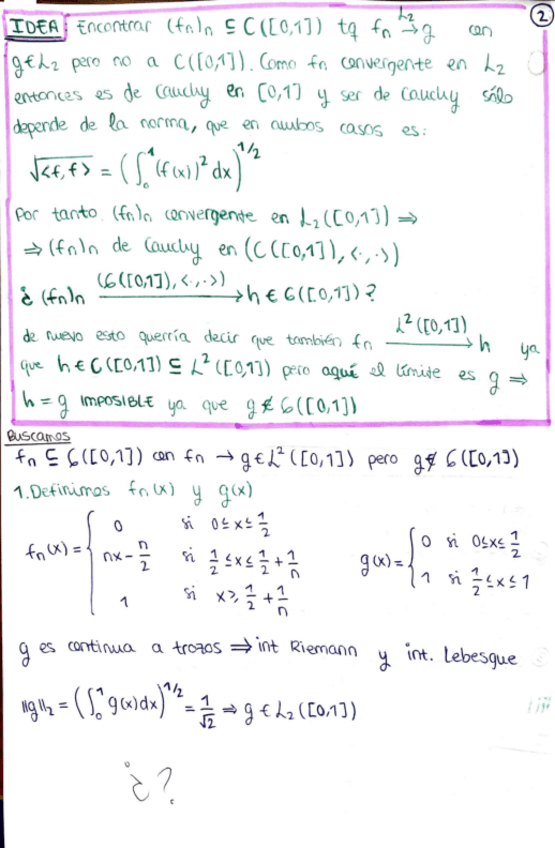 2
IDEA Encontrar (fn)n ⊆ C([0,1]) tq fn →^{L2} g con
g∈L2 pero no a C([0,1]). Como fn convergente en L2
entonces es de Cauchy en [0,1] y ser de Cauchy sólo
depende de la norma, que en ambos casos es:
√<f,f> = (∫₀¹ (f(x))² dx)^{1/2}
Por tanto. (fn)n convergente en L2([0,1]) ⇒
⇒ (fn)n de Cauchy en (C([0,1]), <·,·>)
¿ (fn)n →^{(C([0,1]), <·,·>)} h ∈ C([0,1]) ?
de nuevo esto querría decir que también fn →^{L²([0,1])} h ya
que h ∈ C([0,1]) ⊆ L²([0,1]) pero aquí el límite es g ⇒
h = g IMPOSIBLE ya que g ∉ C([0,1])
Buscamos
fn ⊆ C([0,1]) con fn → g ∈ L²([0,1]) pero g ∉ C([0,1])
1. Definimos fn(x) y g(x)
fn(x) = { 0 si 0 ≤ x ≤ 1/2
nx - n/2 si 1/2 ≤ x ≤ 1/2 + 1/n
1 si x ≥ 1/2 + 1/n
g(x) = { 0 si 0 ≤ x ≤ 1/2
1 si 1/2 ≤ x ≤ 1
g es continua a trozos ⇒ int Riemann y int. Lebesgue
||g||₂ = (∫₀¹ g(x) dx)^{1/2} = 1/√2 ⇒ g ∈ L2([0,1])
¿?